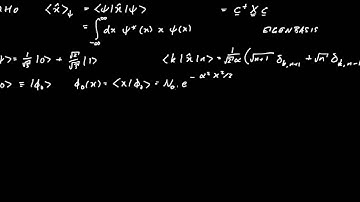 HO <x̂>_ψ = <ψ|x̂|ψ> = c⁺ X c
= ∫_{-∞}^{∞} dx ψ*(x) x ψ(x) EIGENBASIS
ψ> = 1/√3 |0> + √2/√3 |1> <k|x̂|n> = 1/(√2 α) (√(n+1) δ_{k,n+1} + √n δ_{k,n-1}
0> ≡ |ϕ₀> ϕ₀(x) = <x|ϕ₀> = N₀ . e^{-α²x²/2}